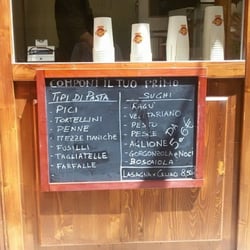 COMPONI IL TUO PRIMO
TIPI DI PASTA
- PICI
- TORTELLINI
- PENNE
- MEZZE MANICHE
- FUSILLI
- TAGLIATELLE
- FARFALLE
SUGHI
- RAGÙ
- VEGETARIANO
- PESTO
- PESCE
- AGLIONE
- GORGONZOLA e NOCI
- BOSCAIOLA
DA 5 €
LASAGNA
8,50